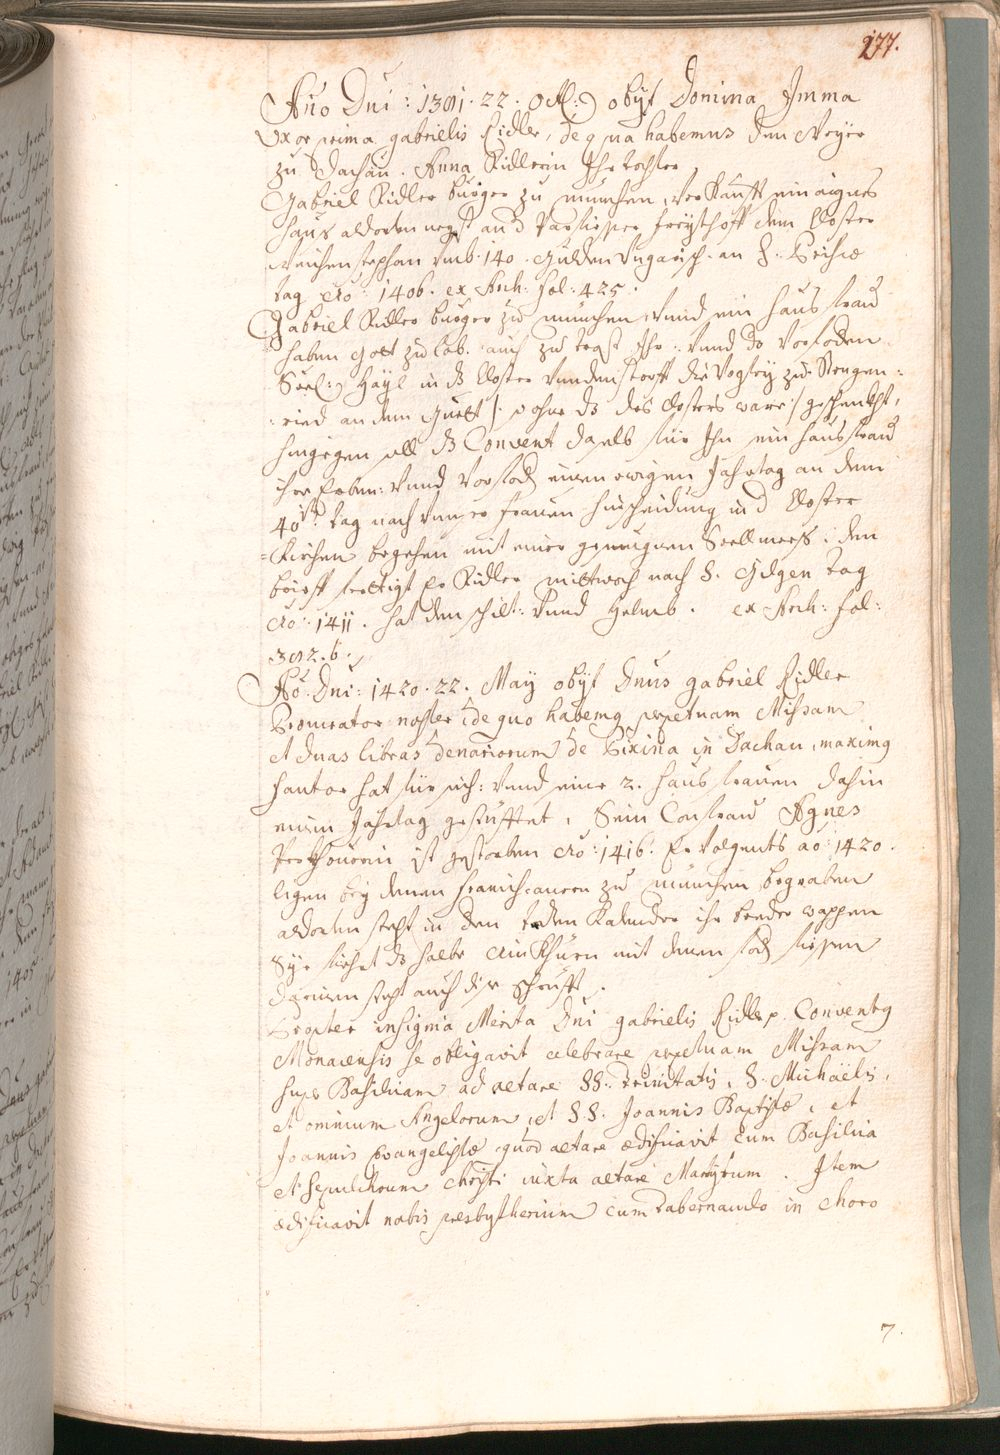 277.
Año Dni: 1391. 22. Octb: obijt Domina Imma
Vxor prima gabrielis Ridler, de qua habemus den Mayr
zu Dachau. Anna Ridlerin Ihr tochter
Gabriel Ridler burger zu münchen, verkaufft ein aignes
haus aldorten negst an d Parfiesser freythoff dem Closter
Weichenstephan vmb. 140. Gulden Vngarisch. an S. Erisiæ
tag Aō: 1406. ex Arch: fol: 425.
Gabriel Ridler burger zu münchen, vnnd sein hausfrau
haben Gott zu lob. auch zu trost Ihr: vnnd der Vorfodern
Seel: Hayl in ds Closter Vnderstorff die Vogtey zu Stengen:
:ried an dem Guett /: so ohne ds des Closters ware :/ geschenckht,
hingegen soll ds Convent daselb für Ihn sein hausfrau
ihre Erben: vnnd Vorfod: einen ewigen Jahrtag an dem
40ist: tag nach vnser frauen hinscheidung in d Closter
=Kirchen begehen mit einer gesungnen Seellmess: den
brieff ferttigt Er Ridler mittwoch nach S. Gilgen tag
Aō: 1411. hat den schilt: vnnd Helmb. ex Arch: fol:
392. b.
Aō. Dni: 1420. 22. Maÿ obijt Dnus gabriel Ridler
Procurator noster de quo habemq perpetuam Missam
et duas libras denariorum de Pixina in Dachau, maximq
fautor hat für sich: vnnd seine 2. hausfrauen dahin
einen Jahrtag gestüfftet, Sein Confrau Agnes
ist gestorben Aō: 1416. Er volgents aō: 1420.
ligen bey denen Franciscanern zu münchen begraben
aldorten steht in den toden Kalender ihr beeder wappen
Sye fiehrt ds halbe Ainkhürn mit denen
darinen steht auch dise schrifft.
Propter insignia Merita Dni gabrielis Ridler Conventq
Monacensis se obligavit celebrare perpetuam Missam
super Basilicam ad altare SS: trinitatis, S. Michaëlis,
et omnium Angelorum, et SS. Joannis Baptistæ, et
Joannis Evangelistæ quod altare ædificavit cum Basilica
et Sepulchrum Christi iuxta altare Martyrum. Item
ædificavit nobis presbyterium cum tabernaculo in choro
7.